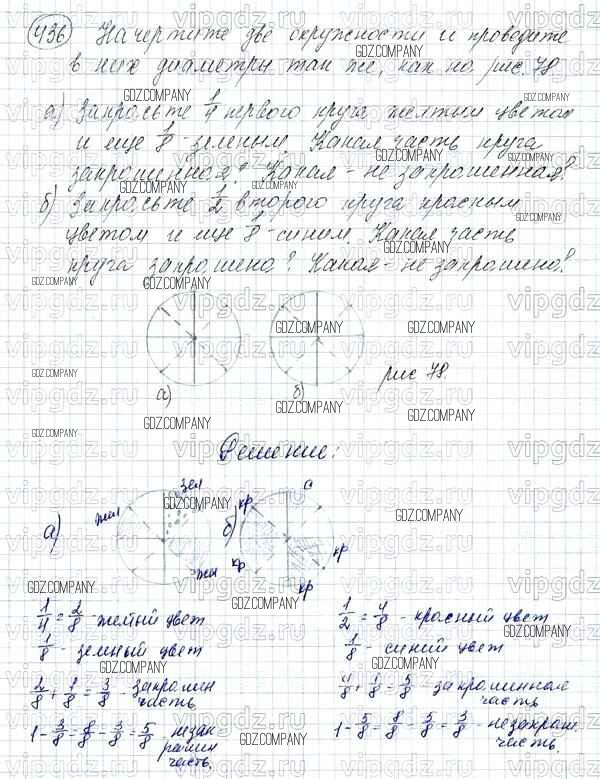 436 Начертите две окружности и проведите
в них диаметры так же, как на рис. 78
а) Закрасьте 1/4 первого круга желтым цветом
и еще 1/8 - зеленым. Какая часть круга
закрашенная? Какая - не закрашенная?
б) Закрасьте 1/2 второго круга красным
цветом и еще 1/8 - синим. Какая часть
круга закрашена? Какая - не закрашена?
а) б) рис 78.
Решение:
а) жел зел жел
б) кр с кр кр кр
1/4 = 2/8 - желтый цвет
1/8 - зеленый цвет
2/8 + 1/8 = 3/8 - закрашин
часть
1 - 3/8 = 8/8 - 3/8 = 5/8 - незак
рашин
часть
1/2 = 4/8 - красный цвет
1/8 - синий цвет
4/8 + 1/8 = 5/8 - закрашинная
часть
1 - 5/8 = 8/8 - 5/8 = 3/8 - незакраш.
часть.
GDZ.COMPANY
vipgdz.ru